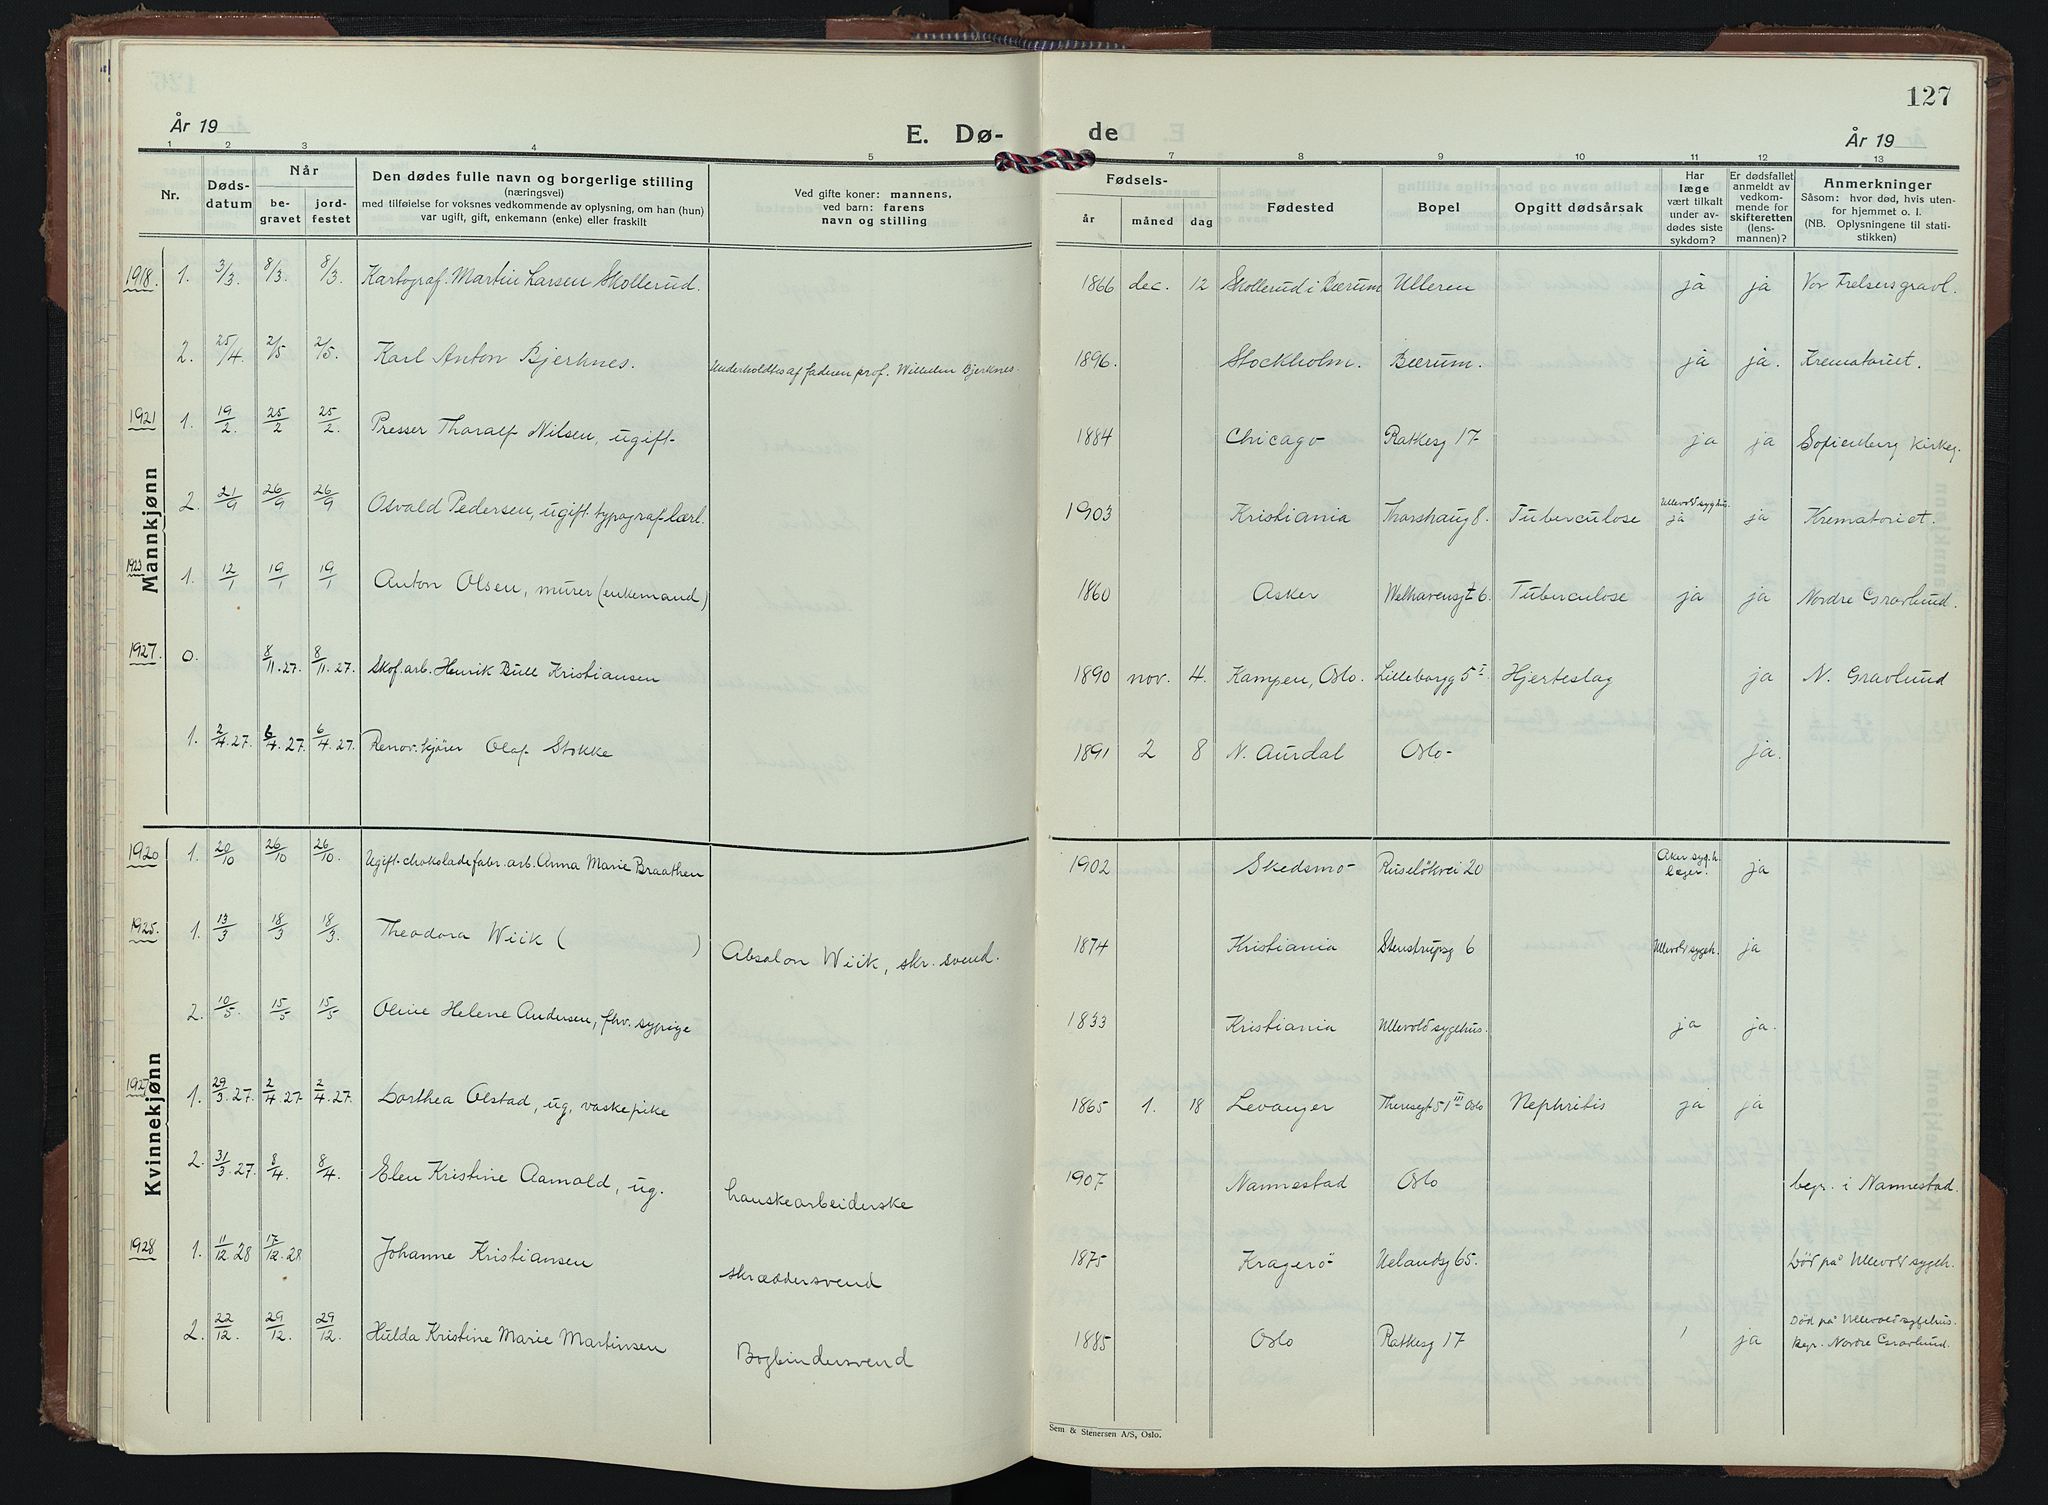 127
År 19
E. Dø-
de
År 19
1 2 3 4 5 7 8 9 10 11 12 13
Nr.
Døds-
datum
Når
be-
gravet
jord-
festet
Den dødes fulle navn og borgerlige stilling
(næringsvei)
med tilføielse for voksnes vedkommende av oplysning, om han (hun)
var ugift, gift, enkemann (enke) eller fraskilt
Ved gifte koner: mannens,
ved barn: farens
navn og stilling
Fødsels-
år måned dag
Fødested
Bopel
Opgitt dødsårsak
Har
læge
vært tilkalt
under av-
dødes siste
sykdom?
Er dødsfallet
anmeldt av
vedkom-
mende for
skifteretten
(lens-
mannen)?
Anmerkninger
Såsom: hvor død, hvis uten-
for hjemmet o. l.
(NB. Oplysningene til stati-
stikken)
Mannkjønn
1918. 1. 3/3. 8/3. 8/3. Kartograf. Martin Larsen Skollerud. 1866 dec. 12 Skollerud i Bærum Ulleren ja ja Vor Frelsers gravl.
2. 25/4. 2/5 2/5. Karl Anton Bjerknes. Underholdtes af faderen prof. Wilhelm Bjerknes. 1896. Stockholm. Bærum. ja ja. Krematoriet.
1921 1. 19/2. 25/2 25/2. Presser Thoralf Nilsen, ugift 1884 Chicago Ratkesg 17 ja ja Sofienberg Kirkeg.
2. 21/9 26/9 26/9 Osvald Pedersen, ugift typograflærl. 1903 Kristiania Thorshaug 8. Tuberculose Ullevold syghus. ja ja Krematoriet.
1923 1. 12/1 19/1 19/1 Anton Olsen, murer (enkemand) 1860 Asker Welhavensgt 6. Tuberculose ja ja Nordre Gravlund.
1927. 0. 8/11.27. 8/11.27. Skof.arb. Henrik Bull Kristiansen 1890 nov. 4. Kampen, Oslo. Lilleborgg 5 I Hjerteslag ja N. Gravlund
1. 2/4.27. 6/4.27. 6/4.27. Renov.kjører Olaf Stokke 1891 2 8 N. Aurdal Oslo- ja.
Kvinnekjønn
1920 1. 20/10 26/10 26/10. Ugift chokoladefabr. arb. Anna Marie Braathen 1902 Skedsmo Ruseløkvei 20 Aker syg.h. læger. ja
1925. 1. 13/3 18/3 18/3. Theodora Wiik ( ) Absalon Wiik, skr. svend. 1874 Kristiania Stenstrupsg 6 Ullevold sygeh. ja
2. 10/5. 15/5 15/5 Oline Helene Andersen, fhv. sypige 1833 Kristiania Ullevold sygehus. ja ja.
1927 1. 29/3.27. 2/4.27 2/4.27. Dorthea Olstad, ug, vaskepike 1865 1. 18 Levanger Theresgt 51 III Oslo Nephritis ja ja
2. 31/3.27. 8/4. 8/4 Elen Kristine Aamold, ug. hanskearbeiderske 1907 Nannestad Oslo begr. i Nannestad.
1928 1. 11/12.28 17/12.28 Johanne Kristiansen skræddersvend 1875 Kragerø Uelandsg 65. Død på Ullevold sygeh.
2. 22/12. 29/12. 29/12. Hulda Kristine Marie Martinsen Bogbindersvend 1885 Oslo Ratkesg 17 ja Død på Ullevold sygehus.
Begr. Nordre Gravlund.
Sem & Stenersen A/S, Oslo.